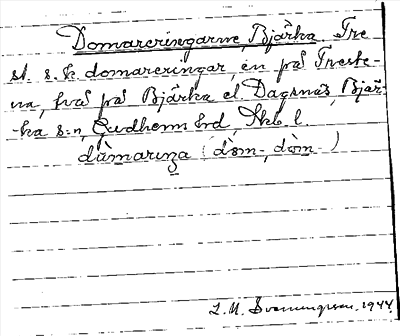 Domareringarne, Bjärka. Tre
st. s.k. domareringar, en på Treste-
na, två på Bjärka el Dagsnäs, Bjär-
ka s:n, Gudhems hd, Skbl.
dùmarıŋa (dòm-, dòm- )
L. M. Svenungsson. 1944.